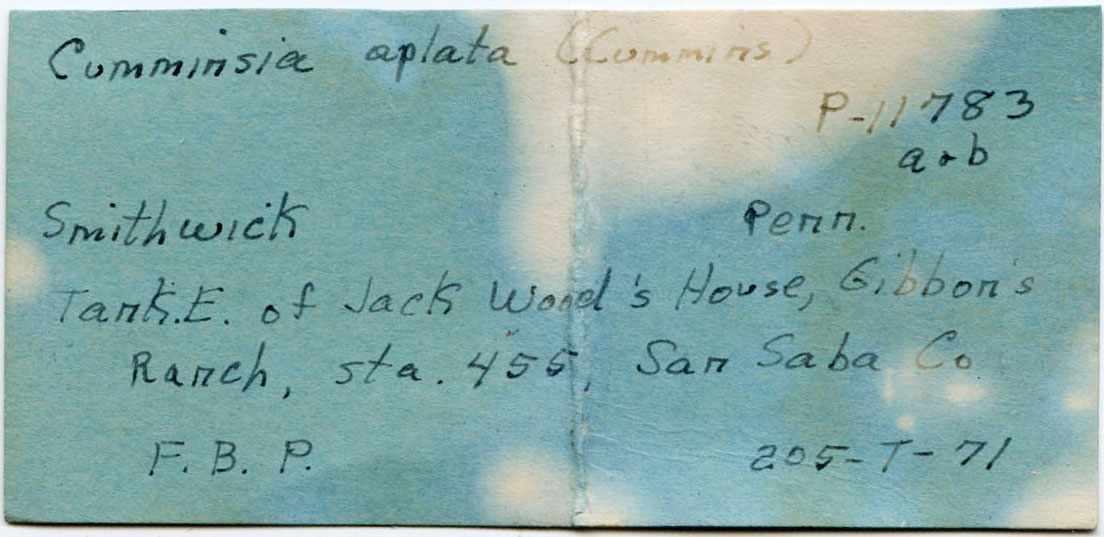 Cumminsia aplata (Cummins)
P-11783
a+b
Smithwick Penn.
Tank.E. of Jack Wood's House, Gibbon's
Ranch, sta. 455, San Saba Co
F. B. P. 205-T-71